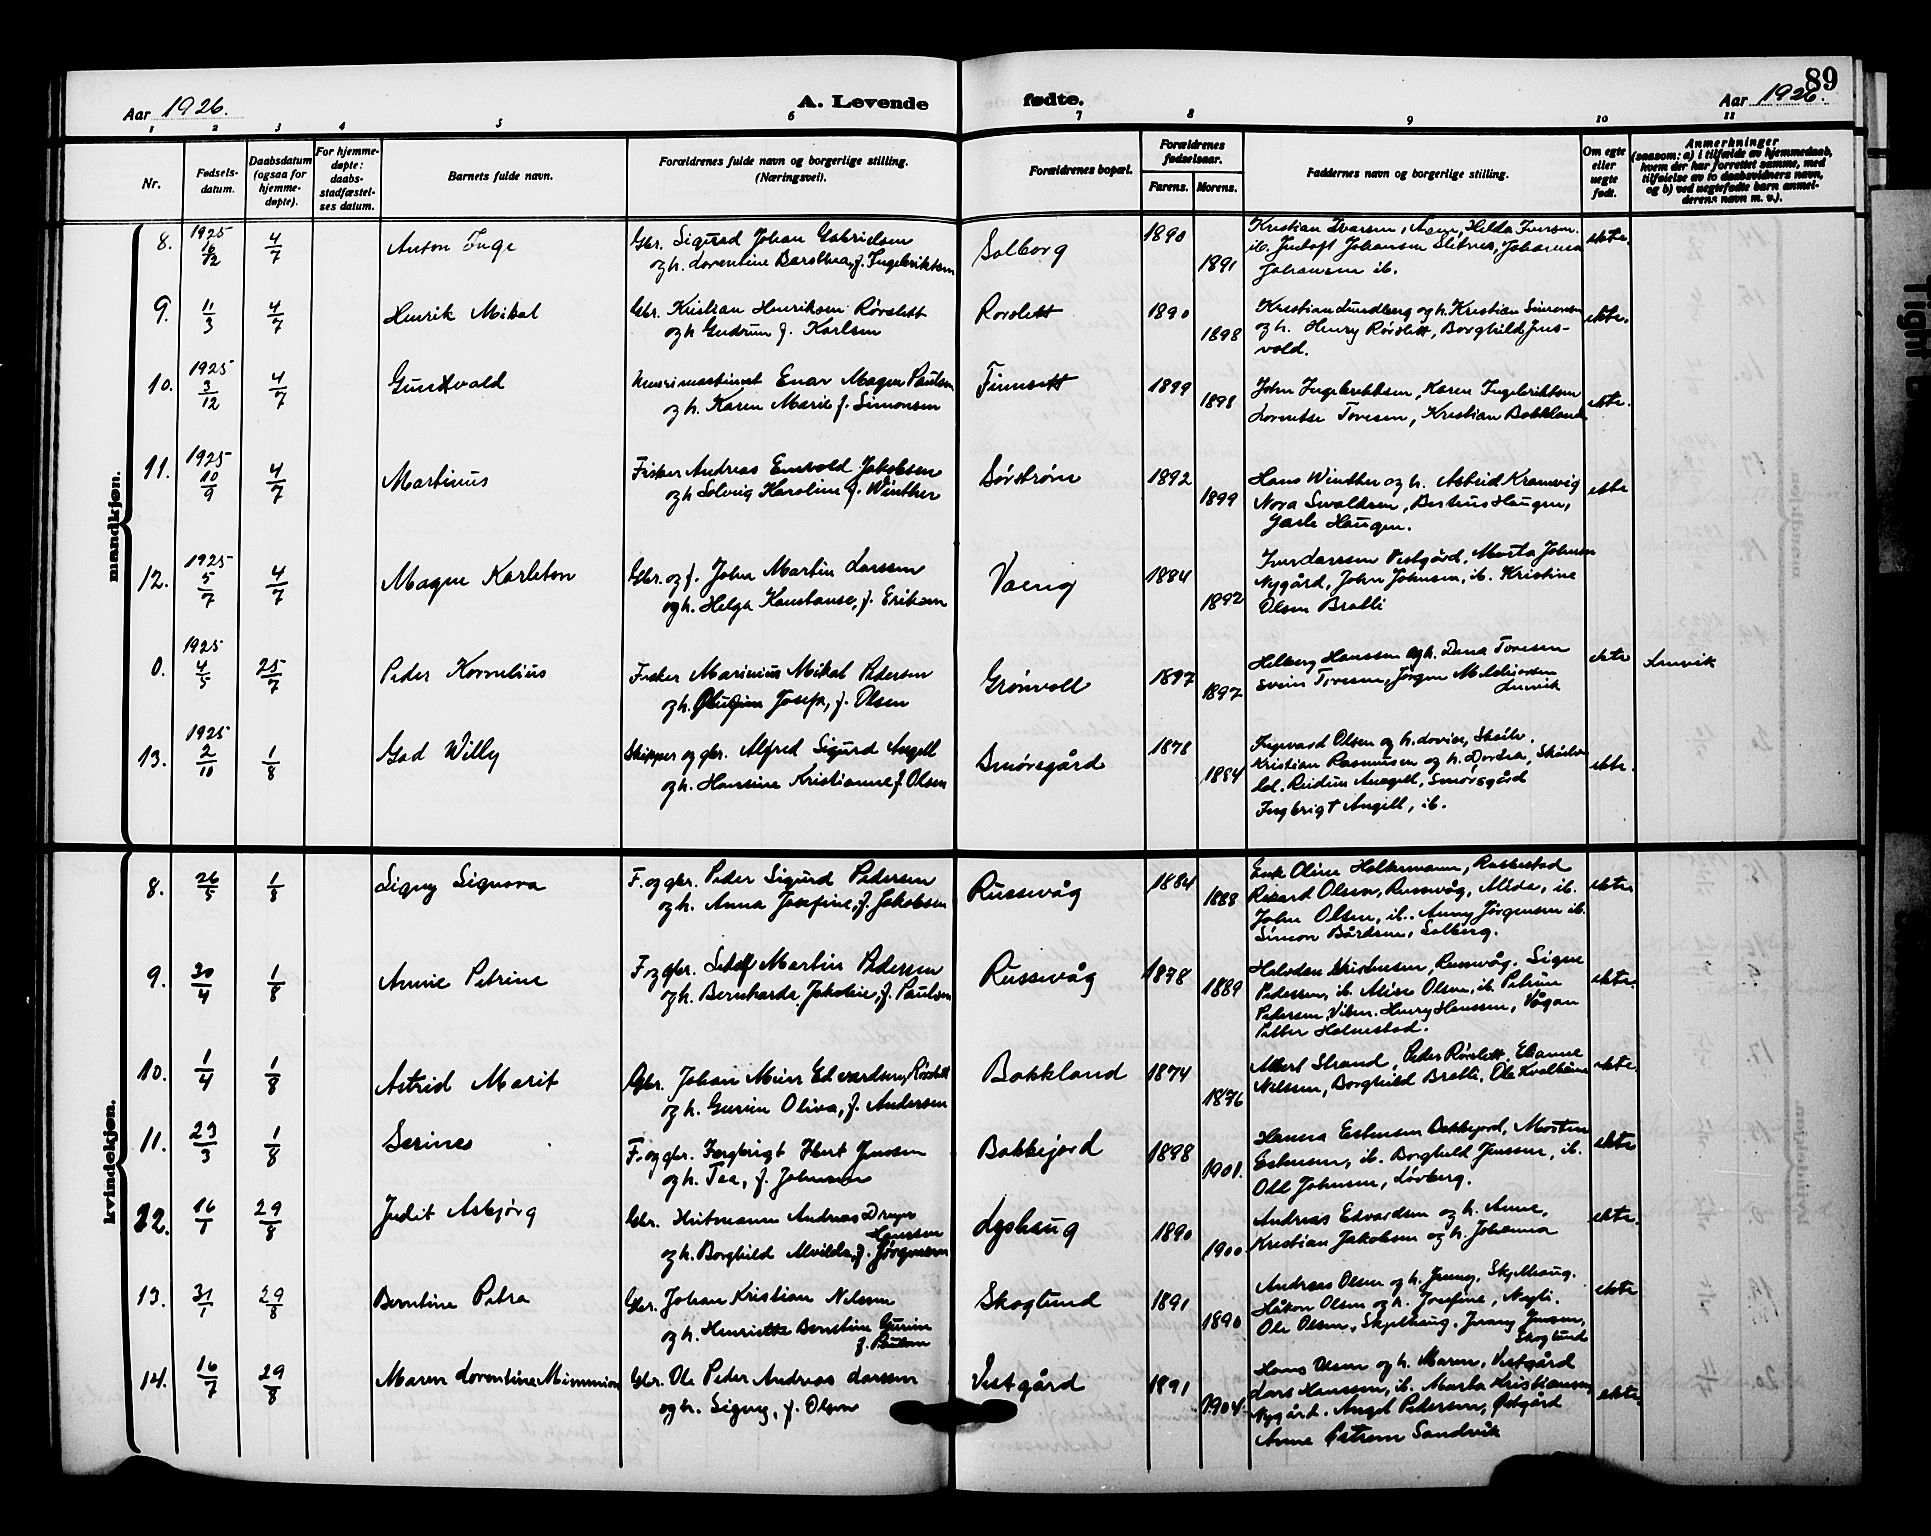 89
Aar 1926.
A. Levende fødte.
Aar 1926.
1 2 3 4 5 6 7 8 9 10 11
Nr.
Fødsels-
datum.
Daabsdatum
(ogsaa for
hjemme-
døpte).
For hjemme-
døpte:
daabs-
stadfæstel-
ses datum.
Barnets fulde navn.
Forældrenes fulde navn og borgerlige stilling.
(Næringsvei).
Forældrenes bopæl.
Forældrenes
fødselsaar.
Farens. Morens.
Faddernes navn og borgerlige stilling.
Om egte
eller
uegte
født.
Anmerkninger
(saasom: a) i tilfælde av hjemmedaab,
hvem der har forrettet samme, med
tilføielse av to daabsvidners navn,
og b) ved uegtefødte barn anmel-
derens navn m. v.).
mandkjøn.
8. 1925 16/12 4/7 Anton Inge
Gbr. Sigurd Johan Gabrielsen
og h. Lorentine Barolhea, f. Ingebriktsen
Solborg 1890 1891
Kristian Ivarsen, Hilda Iversen
ib. Johansen Slitnes, Johanna
Johansen ib.
ekte.
9. 11/3 4/7 Henrik Mikal
Gbr. Kristian Henriksen Rørslett
og h. Gudrun f. Karlsen
Rørslett 1890 1898
Kristian Lundberg og h. Kristian Simonsen
og h. Henry Rørslett, Borghild Jens-
vold.
ekte.
10. 1925 3/12 4/7 Gustvald
Enar Magn Paulsen
og h. Karen Marie f. Simonsen
Finnsett 1899 1898
John Ingebriktsen, Karen Ingebriktsen
Lorentse Toresen, Kristian Bakkland
ekte.
11. 1925 10/9 4/7 Martinus
Fisker Andreas Enevold Jakobsen
og h. Solveig Karoline f. Winther
Sørstrøm 1892 1899
Hans Winther og h. Astrid Kramvig
Nora Sivaldsen, Berteus Haugen,
Haugen.
ekte
12. 1925 5/7 4/7 Magne Karleton
Gbr. og f. John Martin Larssen
og h. Helga Konstanse, f. Eriksen
Vaeng 1884 1892
Iver Larssen Vestgård, Marta Johnsen
Nygård, John Johnsen, ib. Kristine
Olsen Bratli
0. 1925 4/5 25/7 Peder Kornelius
Fisker Marinius Mikal Pedersen
og h. Josefa, f. Olsen
Grønvoll 1897 1897
Hilberg Hanssen og h. Dina Toresen
Svein Toresen, Jørgen
Lenvik
ekte Lenvik
13. 1925 2/10 1/8 Gad Willy
Skipper og gbr. Alfred Sigurd Angell
og h. Hansine Kristianne f. Olsen
Smørsgård 1878 1884
Ingvard Olsen og h. Lovise, Skålv.
Kristian Rasmussen og h. Dortea, Skålv.
Reidun Angell, Smørsgård
Ingbrigt Angell, ib.
ekte.
kvindekjøn.
8. 26/5 1/8 Signy Signora
F. og gbr. Peder Sigurd Pedersen
og h. Anna Josefine, f. Jakobsen
Russevåg 1884 1888
Enk Oline Holtermann, Rakkestad
Rikard Olsen, Russevåg, Alida, ib.
John Olsen, ib. Anny Jørgensen ib.
Simon Bårdsen, Solberg.
ekte
9. 30/4 1/8 Annie Petrine
F. og gbr. Martin Pedersen
og h. Bernharde Jakobie, f. Paulsen
Russevåg 1878 1889
Halvdan Kristensen, Russevåg. Signe
Pedersen, ib. Alise Olsen, ib. Petrine
Petersen, Viken. Henry Hanssen, Vågan
Petter Holmestad.
ekte.
10. 1/4 1/8 Astrid Marit
Gbr. Johan Meier Edvardsen, Rørslett
og h. Gurine Oliva, f. Andersen
Bakkland 1874 1876
Albert Strand, Peder Rørslett, Elianne
Nilssen, Borghild Bratli, Ole Kvalheim
ekte.
11. 23/3 1/8 Serines
F. og gbr. Ingbrigt Hert Jenssen
og h. Tea, f. Johnsen
Bakkejord 1898 1901.
Hanna Estensen Bakkejord, Morten
Estensen, ib. Borghild Jenssen, ib.
Odd Johnsen, Løvberg.
ekte
12. 16/1 29/8 Judit Asbjørg
Gbr. Hritmann Andreas Dreyer
Hanssen
og h. Borghild Alvilda, f. Jørgensen
Lyshaug 1890 1900
Andreas Edvardsen og h. Anne,
Kristian Jakobsen og h. Johanna
ekte.
13. 31/1 29/8 Berntine Petra
Gbr. Johan Kristian Nilssen
og h. Henriette Berntine Gurine
f. Paulsen
Skoglund 1891 1890
Andreas Olsen og h. Jenny, Skjelhaug.
Håkon Olsen og h. Josefine,
Ole Olsen, Skjelhaug. Jenny Jensen,
Skoglund
ekte
14. 16/7 29/8 Maren Lorentine
Gbr. Ole Peder Andreas Larssen
og h. Signy, f. Olsen
Vestgård 1891 1904
Hans Olsen og h. Maren, Vestgård
Lars Hanssen, ib. Marta Kristiansen,
Nygård. Angel Petersen, Østgård
Anne Østrem Sandvik
ekte.